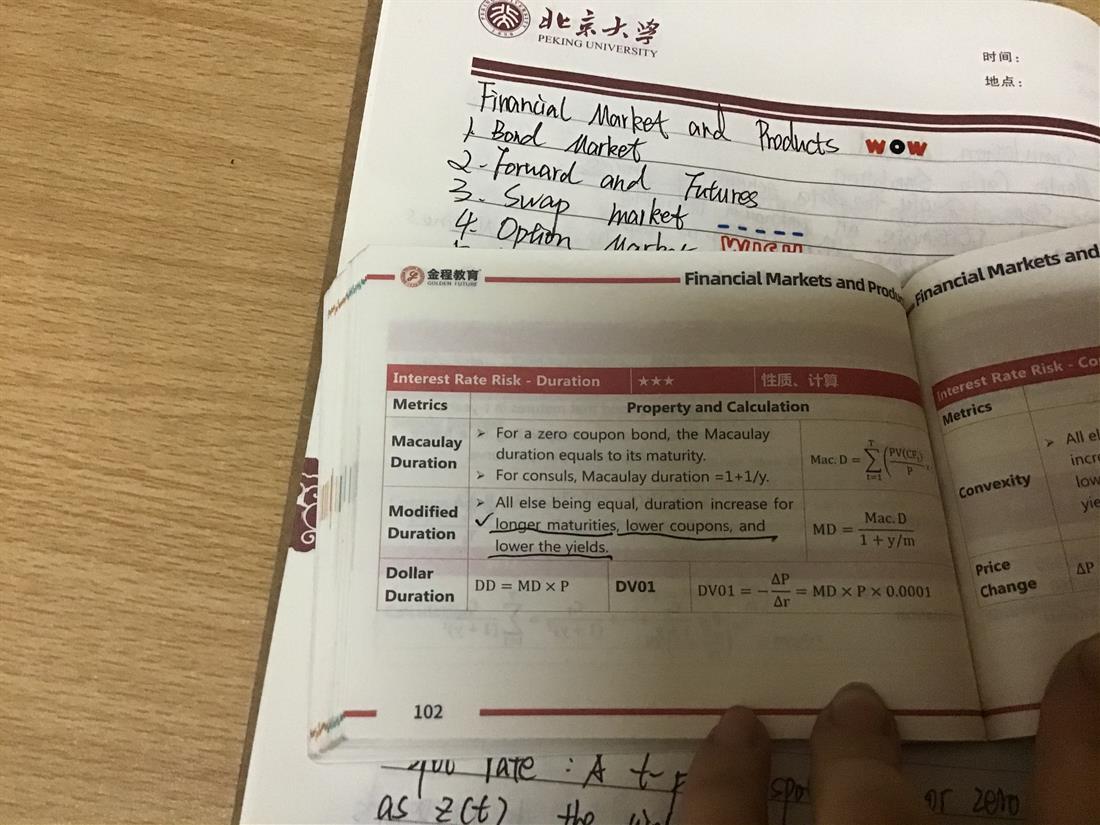 北京大学
PEKING UNIVERSITY
时间:
地点:
Financial Market and Products WOW
1. Bond Market
2. Forward and Futures
3. Swap market
4. Option
金程教育
GOLDEN FUTURE
Financial Markets and
Financial Markets and
Interest Rate Risk - Duration ★★★ 性质、计算
Metrics Property and Calculation
Macaulay Duration
➤ For a zero coupon bond, the Macaulay
duration equals to its maturity.
➤ For consuls, Macaulay duration =1+1/y.
Mac. D = ∑ᵀₜ₌₁ (PV(CFₜ)/P
Modified Duration
➤ All else being equal, duration increase for
✓ longer maturities, lower coupons, and
lower the yields.
MD = Mac. D / 1 + y/m
Dollar Duration
DD = MD × P
DV01
DV01 = −ΔP/Δr = MD × P × 0.0001
102
Interest Rate Risk -
Metrics
Convexity
➤ All
Price Change
ΔP
rate : A
as z(t) the
or zero